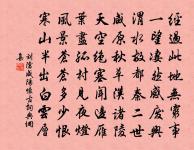 經過此地無窮事
一望淒然感廢興
渭水故都秦二世
咸原秋草漢諸陵
天空絕塞聞邊雁
葉盡孤村見夜燈
風景蒼蒼多少恨
寒山半出白雲層
劉滄咸陽懷古詞典網
集